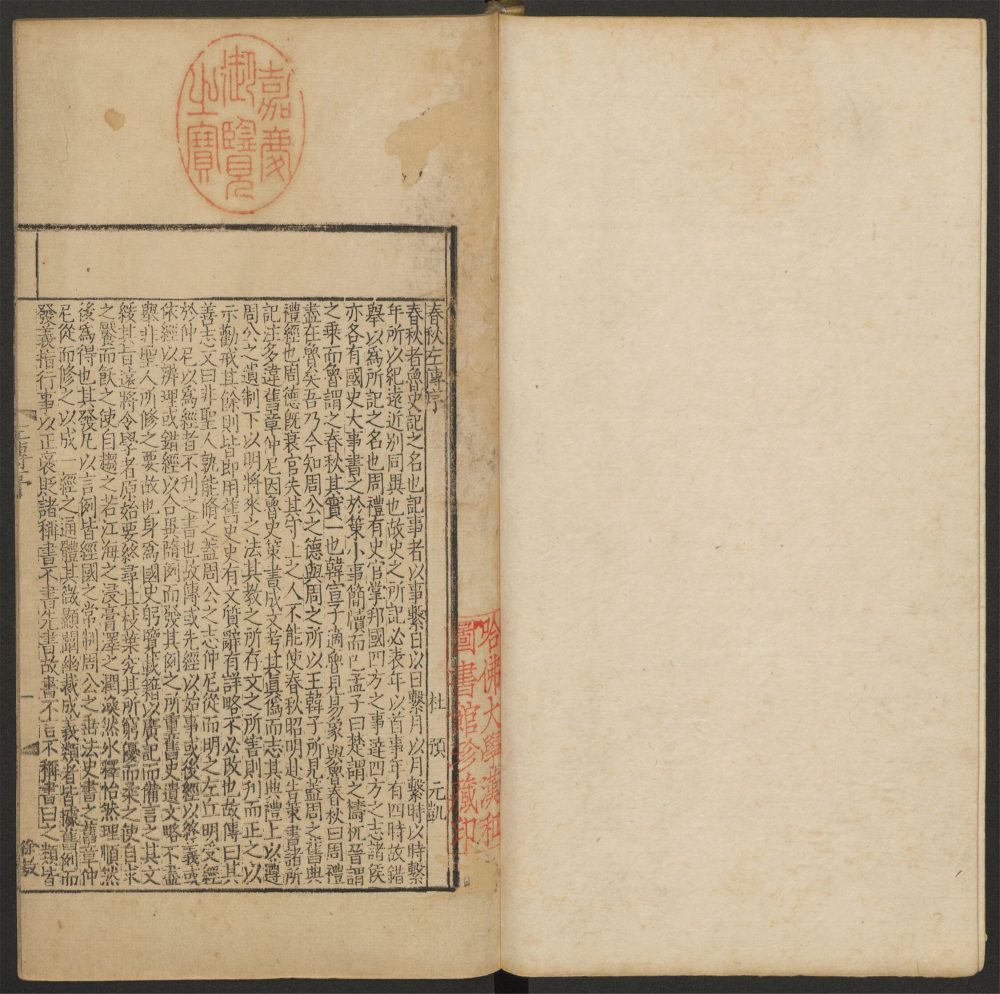 嘉慶
御覽
之寶
哈佛大學漢和
圖書館珍藏印
春秋左傳序 杜預元凱
春秋者魯史記之名也記事者以事繫日以日繫月以月繫時以時繫
年所以紀遠近別同異也故史之所記必表年以首事年有四時故錯
舉以爲所記之名也周禮有史官掌邦國四方之事達四方之志諸侯
亦各有國史大事書之於策小事簡牘而已孟子曰楚謂之檮杌晉謂
之乘而魯謂之春秋其實一也韓宣子適魯見易象與魯春秋曰周禮
盡在魯矣吾乃今知周公之德與周之所以王韓子所見蓋周之舊典
禮經也周德旣衰官失其守上之人不能使春秋昭明赴告策書諸所
記注多違舊章仲尼因魯史策書成文考其眞僞而志其典禮上以遵
周公之遺制下以明將來之法其教之所存文之所害則刊而正之以
示勸戒其餘則皆即用舊史史有文質辭有詳略不必改也故傳曰其
善志又曰非聖人孰能脩之蓋周公之志仲尼從而明之左丘明受經
於仲尼以爲經者不刊之書也故傳或先經以始事或後經以終義或
依經以辨理或錯經以合異隨例而發其例之所重舊史遺文略不盡
舉非聖人所修之要故也身爲國史躬覽載籍必廣記而備言之其文
緩其旨遠將令學者原始要終尋其枝葉究其所窮優而柔之使自求
之饜而飫之使自趨之若江海之浸膏澤之潤渙然冰釋怡然理順然
後爲得也其發凡以言例皆經國之常制周公之垂法史書之舊章仲
尼從而修之以成一經之通體其微顯闡幽裁成義類者皆據舊例而
發義指行事以正褒貶諸稱書不書先書故書不言不稱書曰之類皆
一